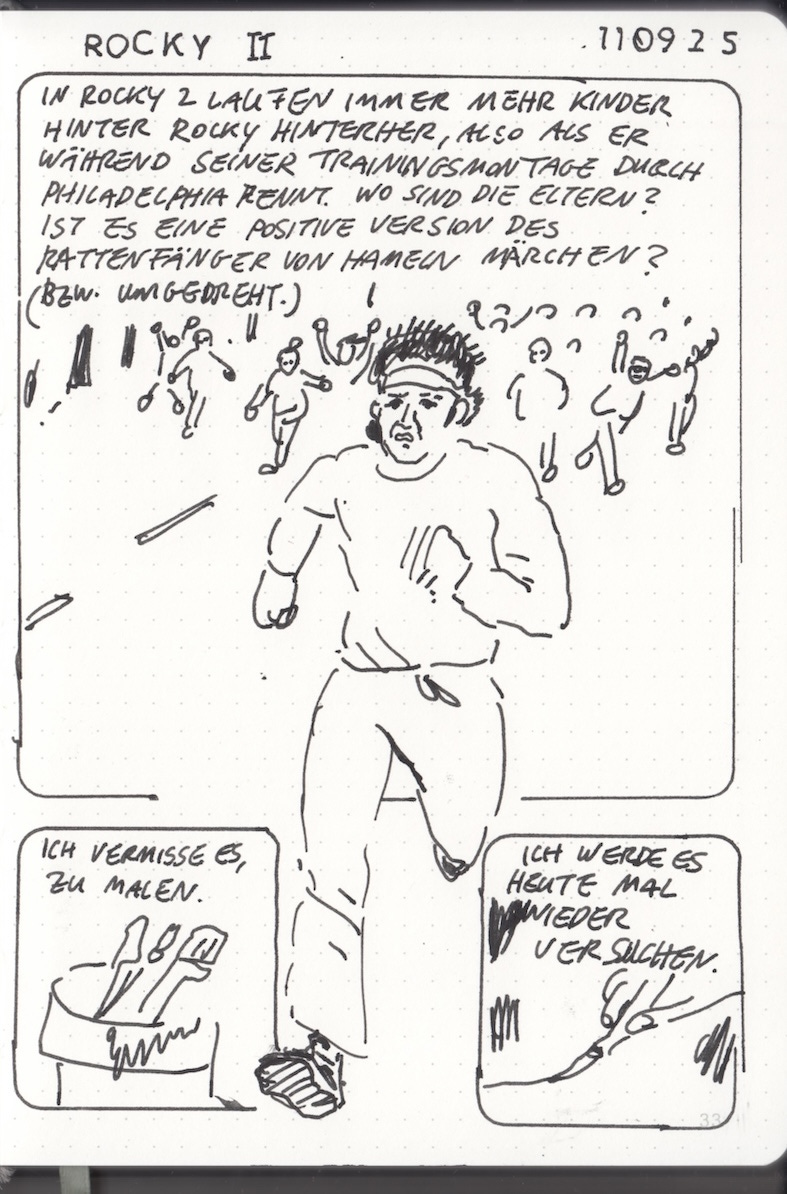 ROCKY II
110925
IN ROCKY 2 LAUFEN IMMER MEHR KINDER
HINTER ROCKY HINTERHER, ALSO ALS ER
WÄHREND SEINER TRAININGSMONTAGE DURCH
PHILADELPHIA RENNT. WO SIND DIE ELTERN?
IST ES EINE POSITIVE VERSION DES
RATTENFÄNGER VON HAMELN MÄRCHEN?
(BZW. UMGEDREHT.)
ICH VERMISSE ES,
ZU MALEN.
ICH WERDE ES
HEUTE MAL
WIEDER
VERSUCHEN.
33